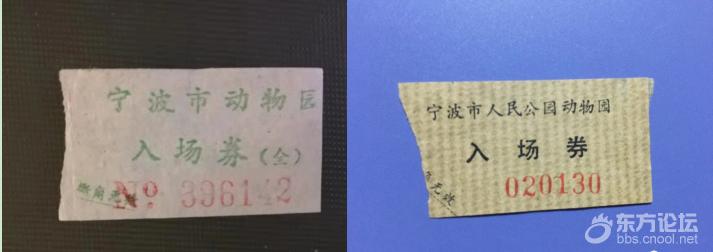 宁波市动物园
入场券(全)
撕角无效
No. 396142
宁波市人民公园动物园
入场券
角无效
020130
东方论坛
bbs.cnool.net